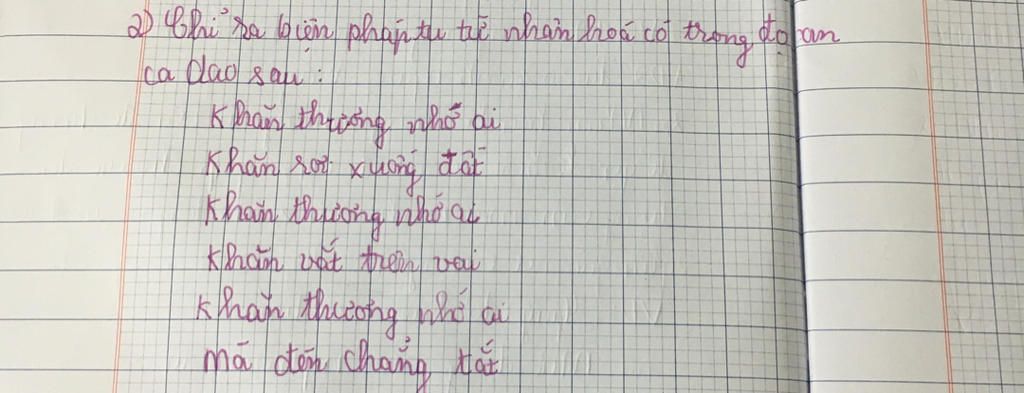 2) Chỉ ra biện pháp tu từ nhân hoá có trong đoạn
ca dao sau :
Khăn thương nhớ ai
Khăn rơi xuống đất
Khăn thương nhớ ai
Khăn vắt trên vai
Khăn thương nhớ ai
mà đèn chẳng tắt